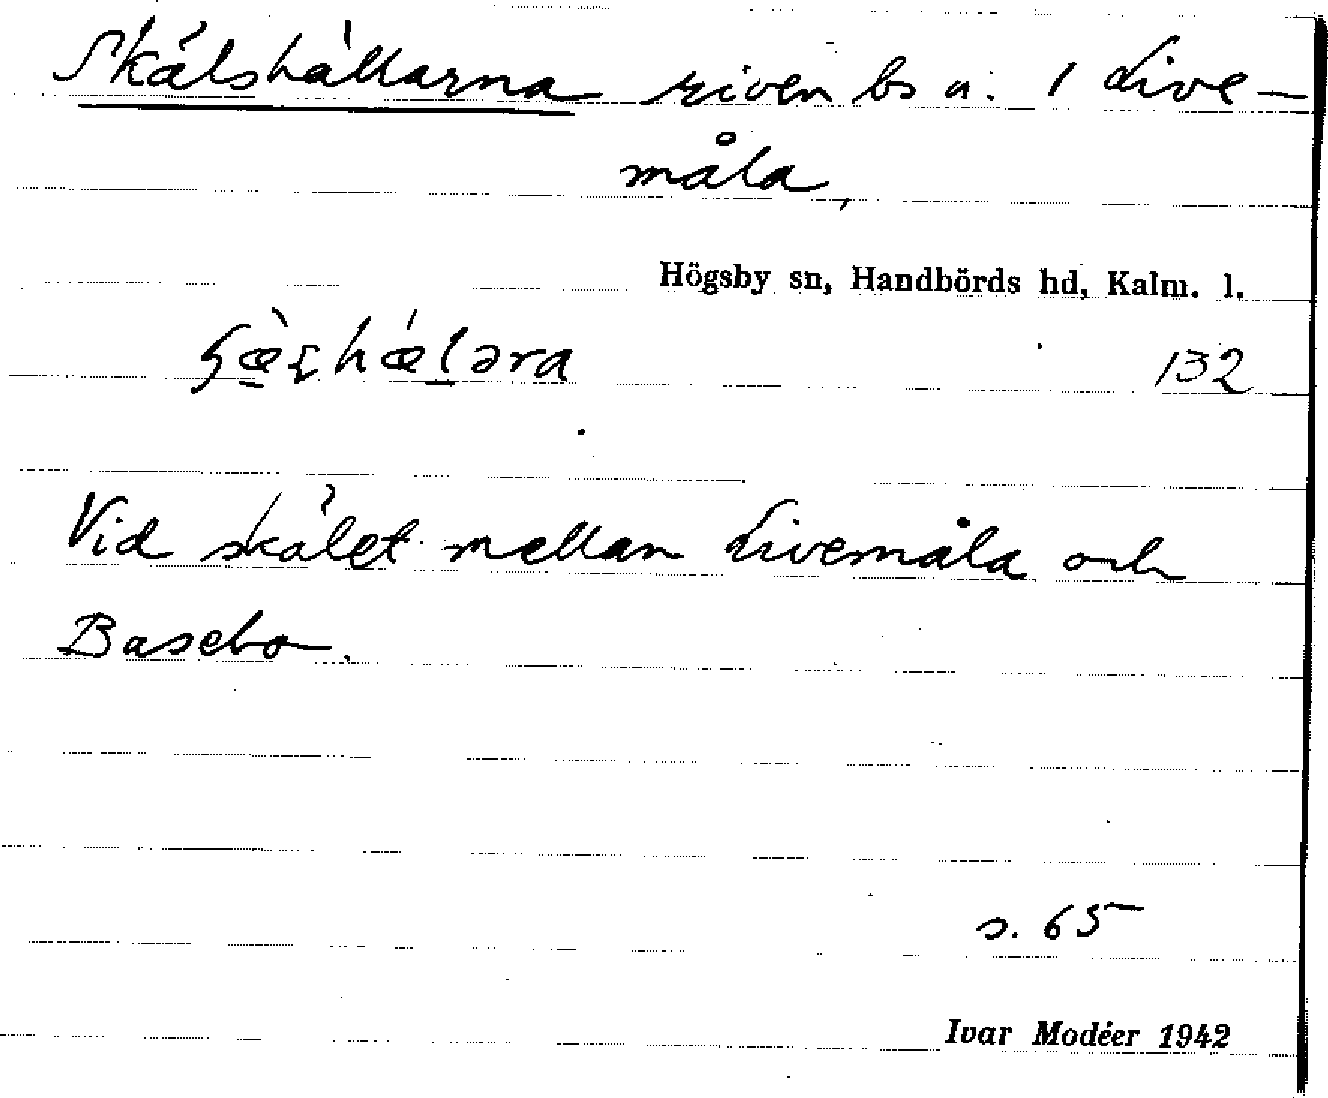 Skälshällarna riven bs u. 1 Live-
måla,
Högsby sn, Handbörds hd, Kalm. l.
132
Vid skälet mellan Livemåla och
Basebo.
s. 65
Ivar Modéer 1942